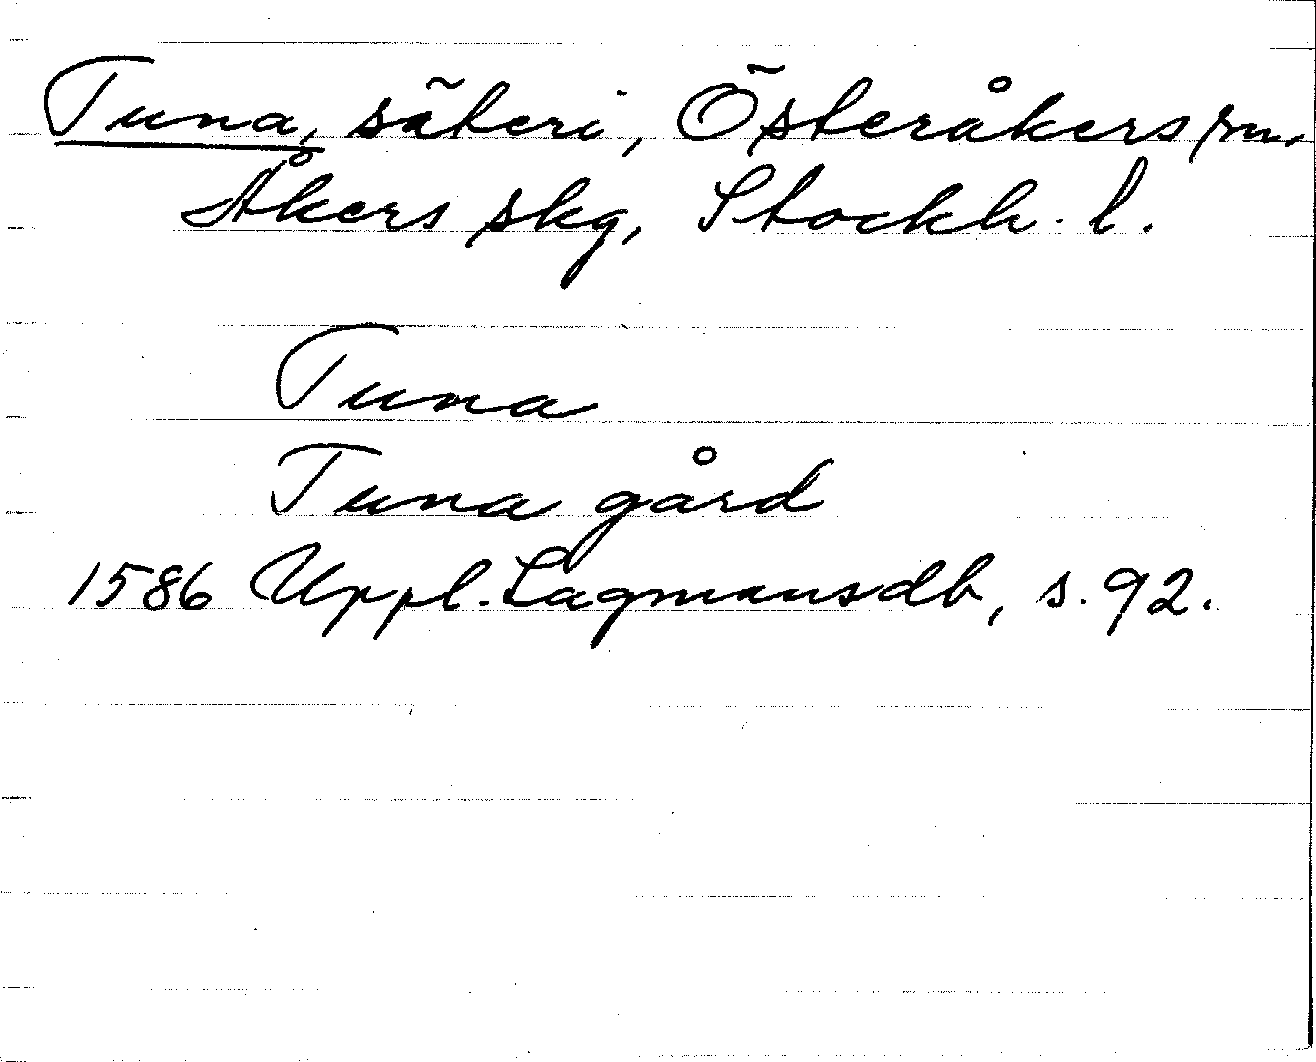 Tuna, säteri, Österåkers sn,
Åkers skg, Stockh. l.
Tuna
Tuna gård
1586 Uppl. Lagmansdb, s. 92.